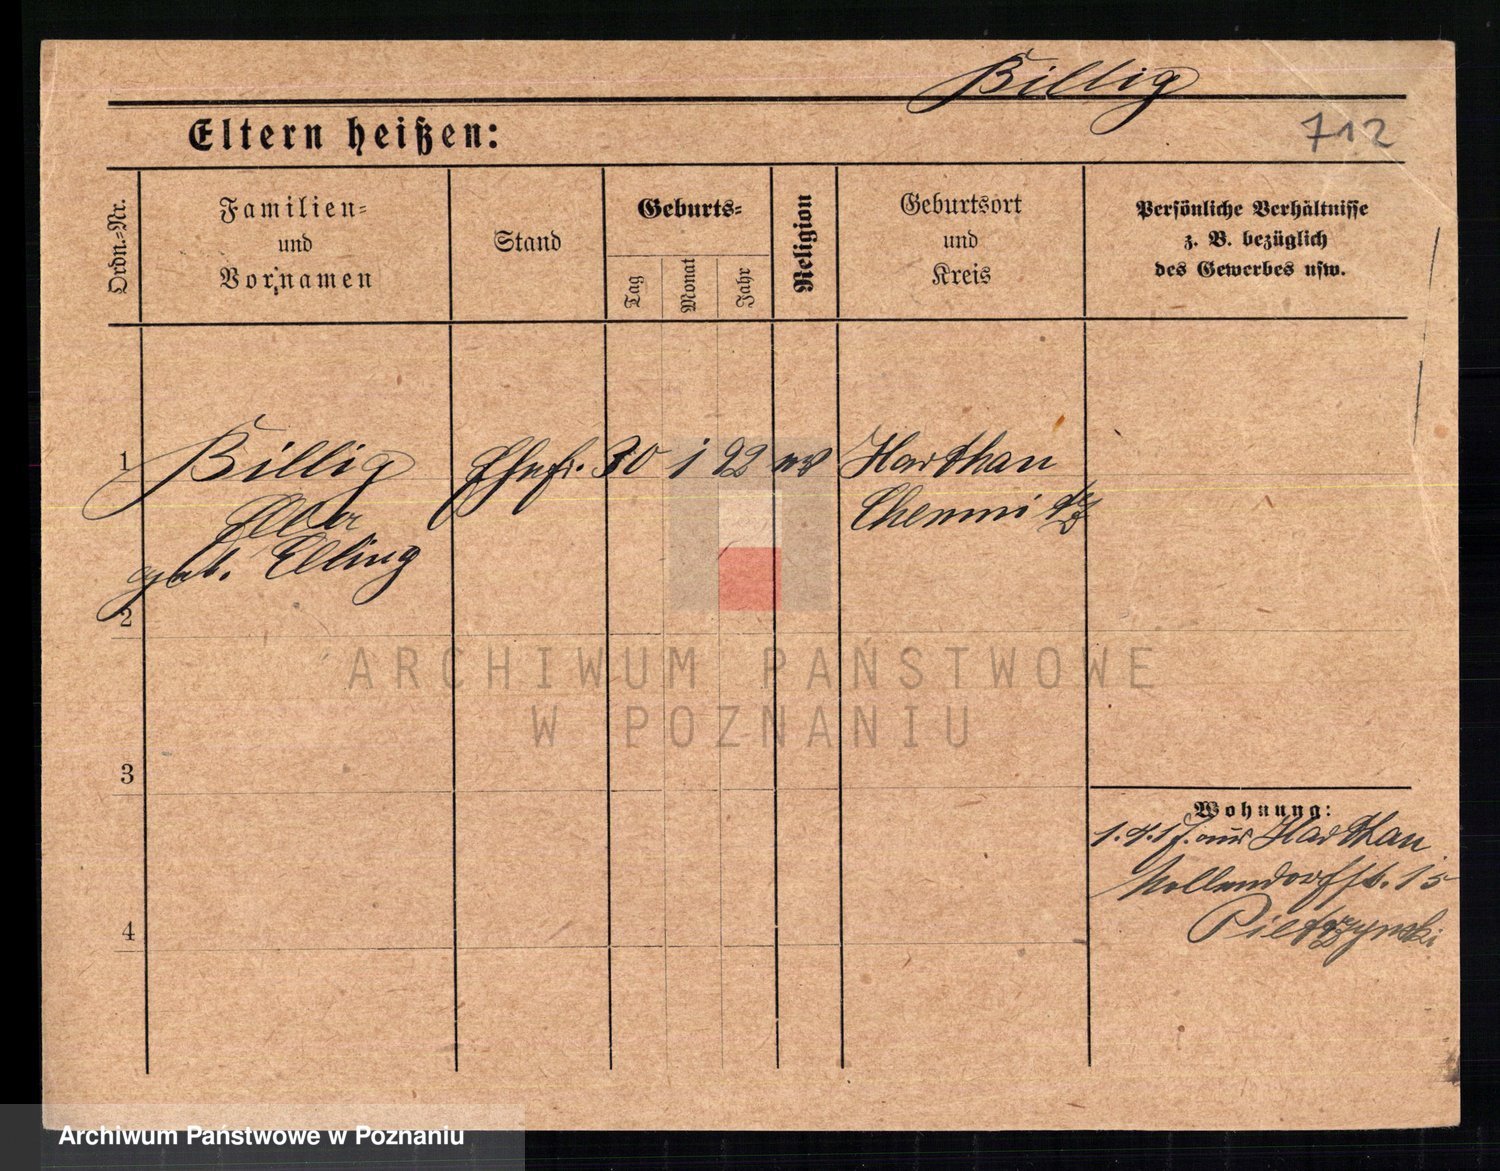 Billig
Eltern heißen:
712
Ordn.-Nr.
Familien-
und
Vornamen
Stand
Geburts-
Tag
Monat
Jahr
Religion
Geburtsort
und
Kreis
Persönliche Verhältnisse
z. B. bezüglich
des Gewerbes usw.
1 Billig Ehefr. 30 1 22 ev Harthau
Chemnitz
geb. Elling
2
3
4
Wohnung:
1.4.17. aus Harthau
Nollendorfstr. 15
Pietrzynski
ARCHIWUM PAŃSTWOWE
W POZNANIU
Archiwum Państwowe w Poznaniu